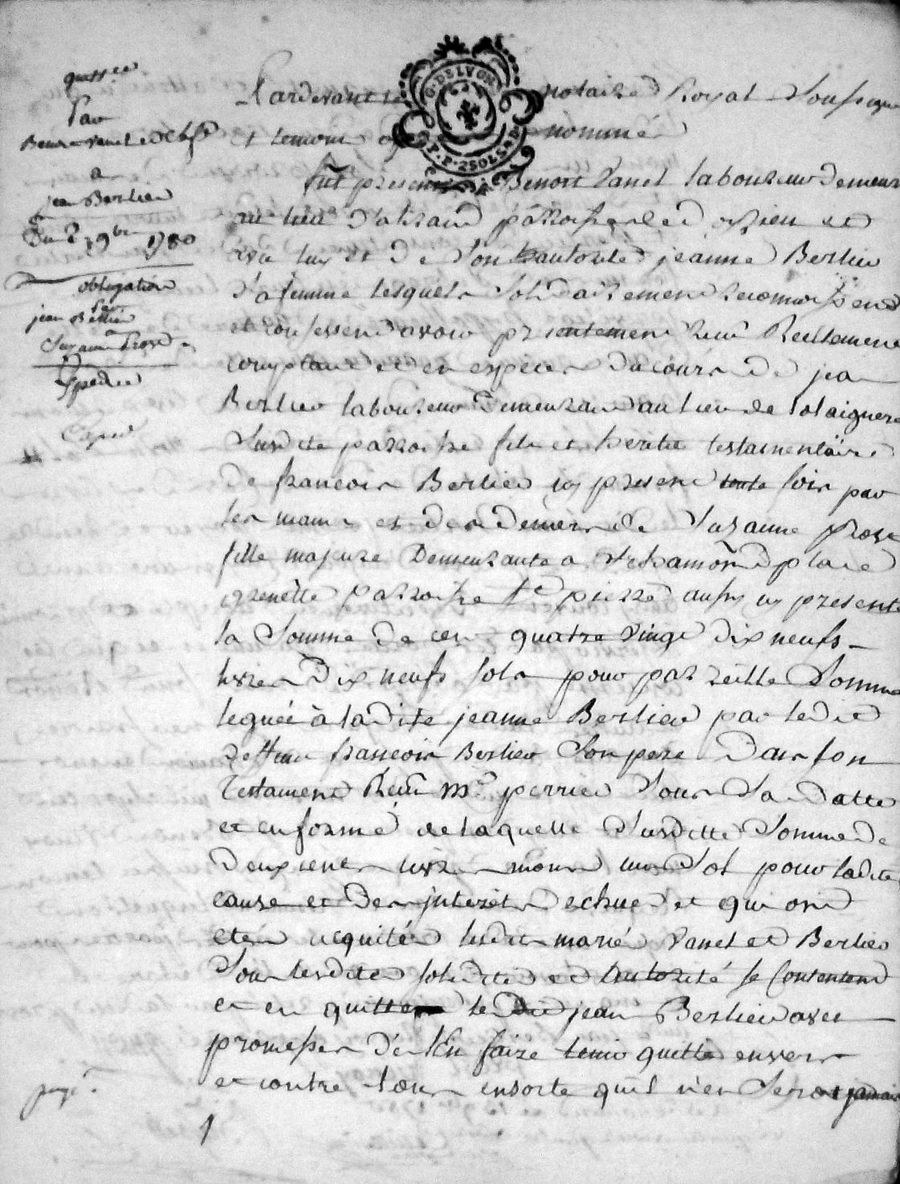 quittce
Par
Benoit Vanel et Berlie
a
jean Berlier
Du 2 9bre 1780
obligation
jean Berlier
a
Suzanne Prost
Expediee
Exped
G. DE LYON
P.P. 2 SOLS 8 D
Pardevant le notaire Royal Soussigné
et temoins nommé
fut present Benoit Vanel laboureur demeur
au lieu d'alzaud parroisse de et
avec luy et de Son hautorité jeanne Berlier
Sa femme lesquels Solidairement reconnoissent
et confessent avoir presentement recu Reellement
comptant et en especes du cours de jean
Berlier laboureur Demeurant au lieu de
Susdite parroisse fils et heritié testamentaire
De francois Berlier icy present toute fois par
les mains et des deniers de Suzanne prost
fille majeure Demeurante a St chamond place
grenette parroisse St pierre aussy icy presente
la Somme de cent quatre vingt dix neufs
livres Dix neufs Sols pour pareille Somme
leguée à ladite jeanne Berlier par ledit
deffunt francois Berlier Son pere Dans son
Testament Recu Me perrier Sous Sa datte
et en forme de laquelle Susditte Somme de
Deux cent livres moins un Sol pour ladite
cause et des interets echus et qui ont
eté acquités lesdits mariés Vanel et Berlier
Sous lesdites Solidité et hautorité Se Contentent
et en quittent le Dit jean Berlier avec
promesses De l'En faire tenir quitte envers
et contre tous ensorte qu'il n'en Serat jamais
1